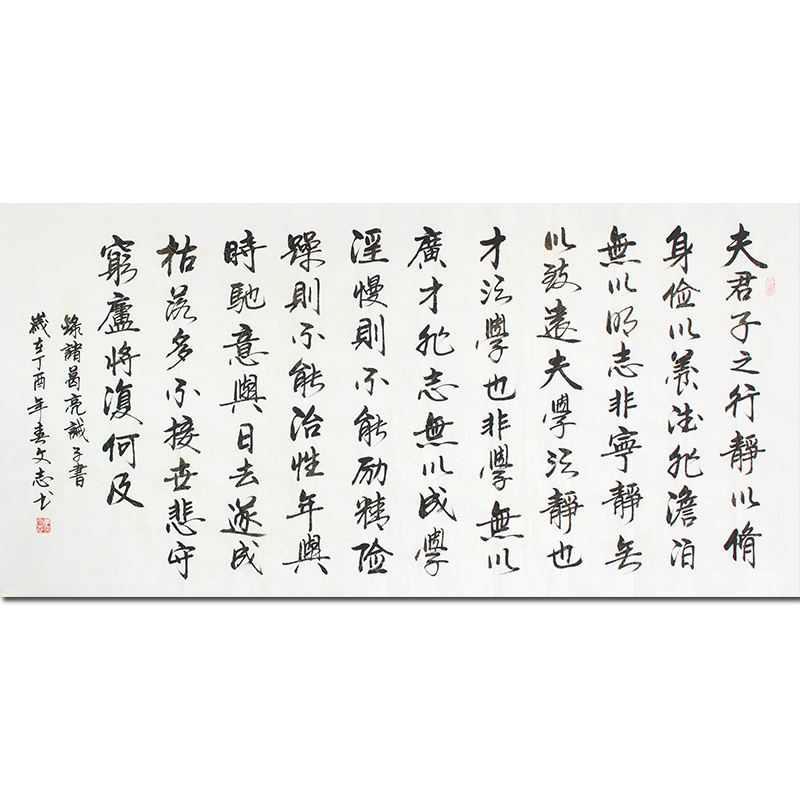 夫君子之行靜以脩
身儉以養德非澹泊
無以明志非寧靜無
以致遠夫學須靜也
才須學也非學無以
廣才非志無以成學
淫慢則不能励精險
躁則不能治性年與
時馳意與日去遂成
枯落多不接世悲守
窮廬將復何及
錄諸葛亮誡子書
歲在丁酉年春文志书